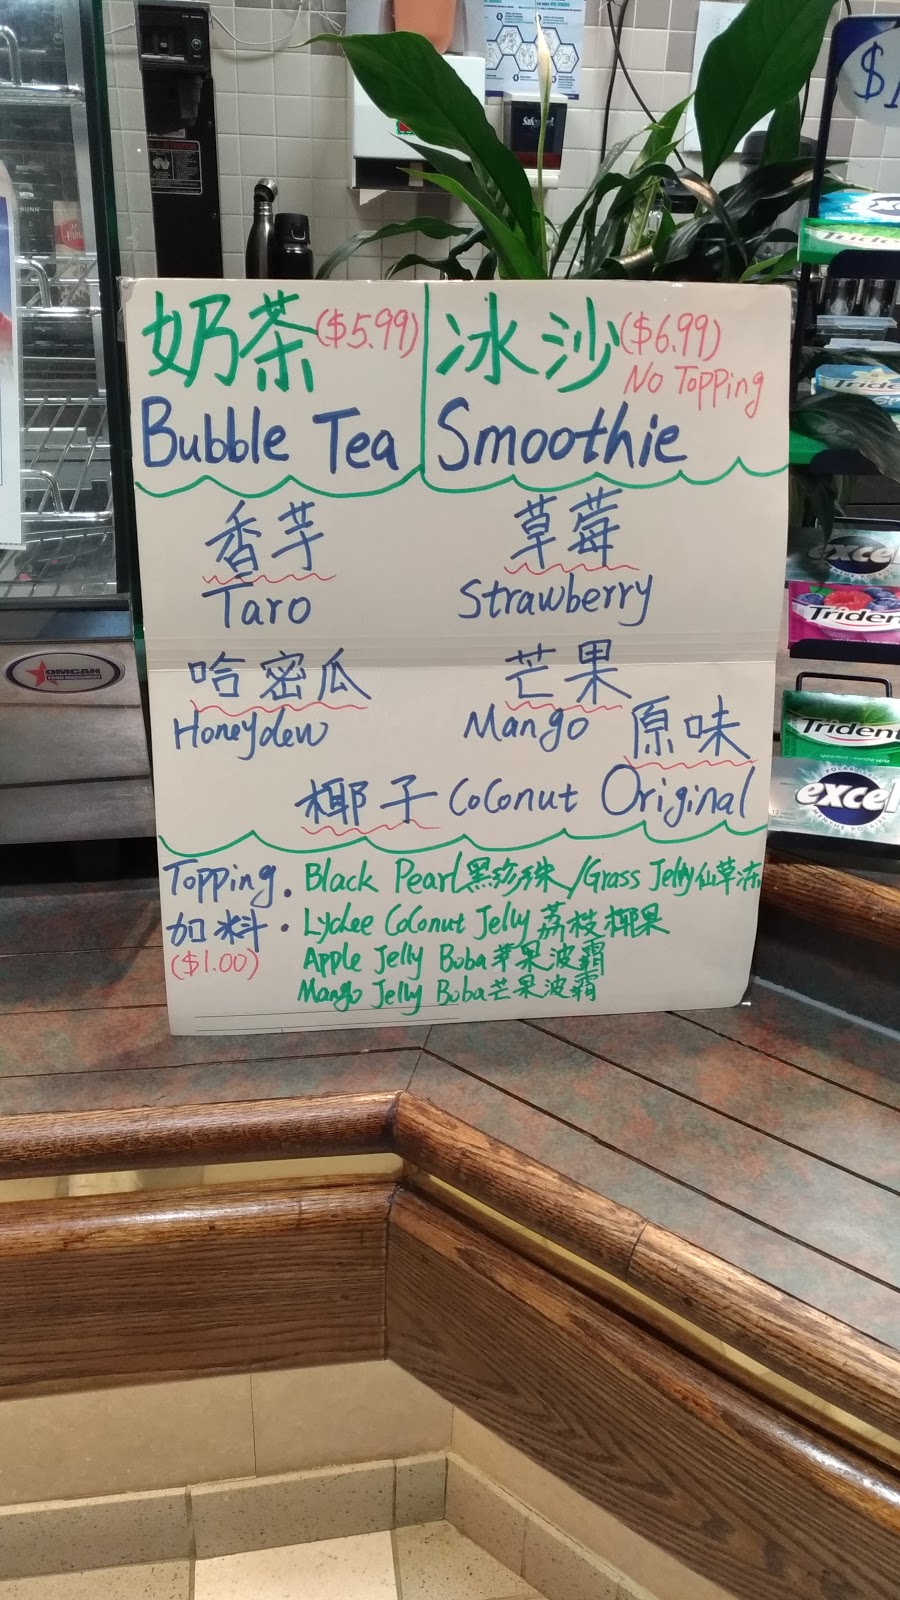 奶茶($5.99)
Bubble Tea
冰沙($6.99)
No Topping
Smoothie
香芋
Taro
草莓
Strawberry
哈密瓜
Honeydew
芒果
Mango
原味
Original
椰子 Coconut
Topping
加料
($1.00)
· Black Pearl 黑珍珠/Grass Jelly 仙草冻
· Lychee Coconut Jelly 荔枝椰果
Apple Jelly Boba 苹果波霸
Mango Jelly Boba 芒果波霸
Safeguard
BUNN
OMCAN
FOOD MACHINERY
$1
excel
Trident
Trident
excel
Trident
Trident
spearmint · menthe verte
POLAR ICE
excel
MENTHE POLAIRE